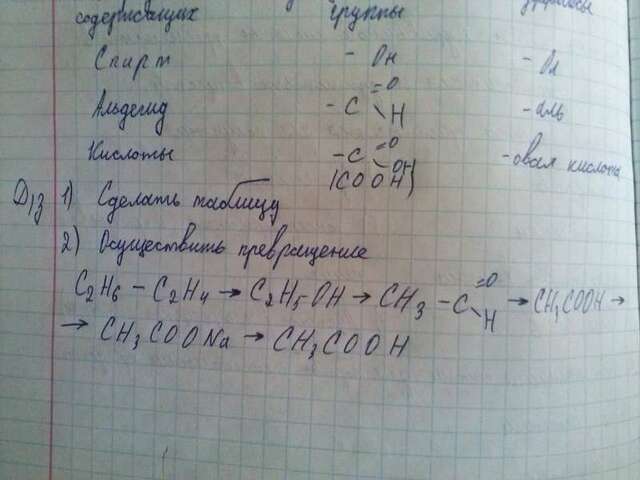 содержащих группы суффиксы
Спирт - OH - Ол
Альдегид - C =O H - аль
Кислоты - C =O OH - овая кислота
(COOH)
Д/з 1) Сделать таблицу
2) Осуществить превращение
C2H6 - C2H4 → C2H5-OH → CH3 - C =O H → CH3COOH →
→ CH3COONa → CH3COOH